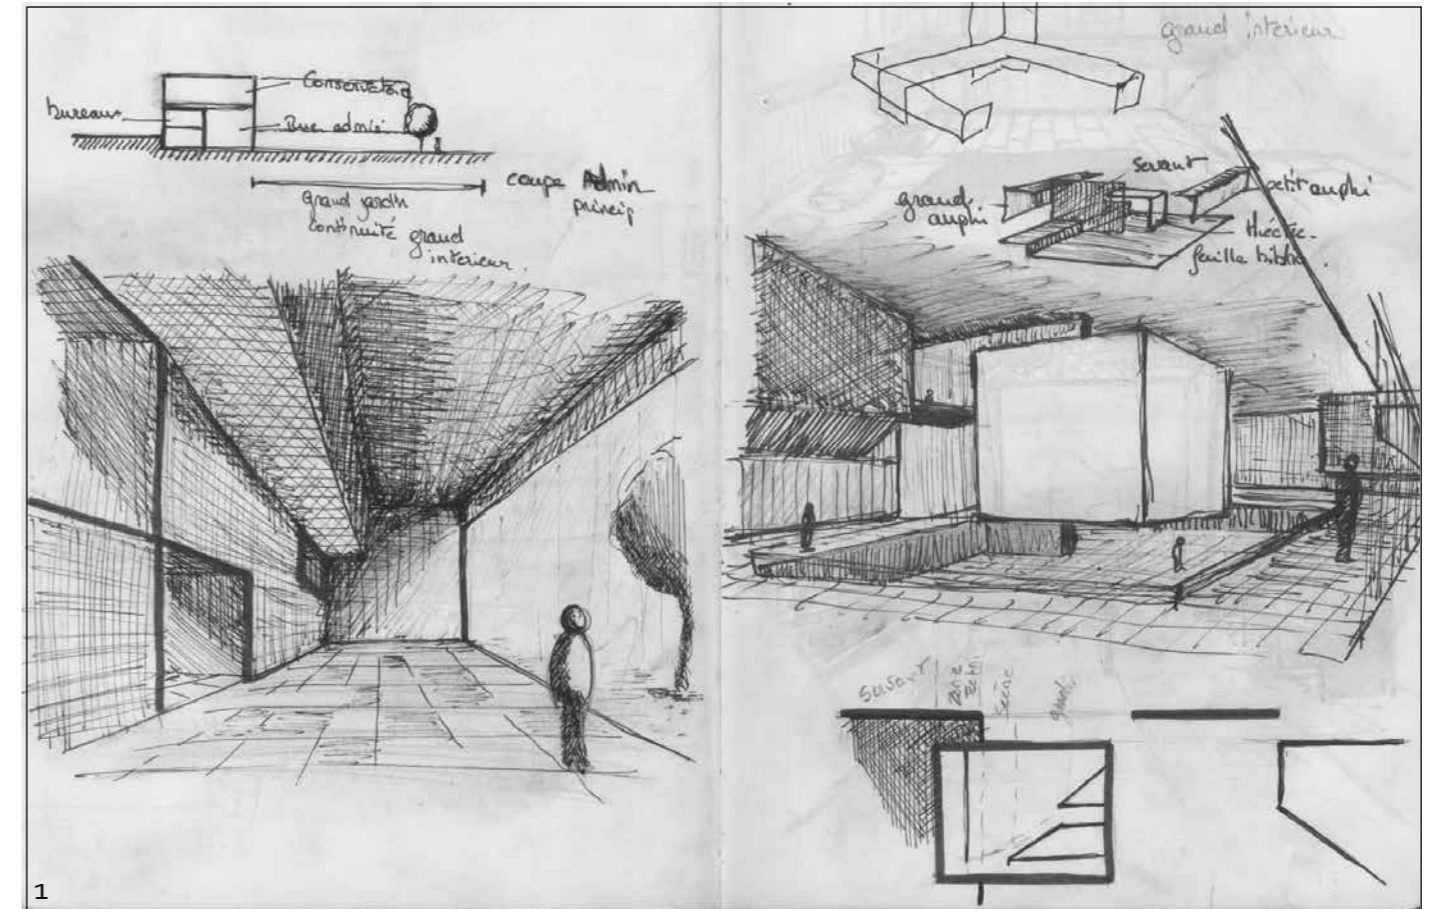 bureaux
Conservatoire
Rue admi
coupe Admin
princip
grand jardin
continuité grand
interieur.
grand interieur
servant
grand
amphi
petit amphi
feuille biblio.
servant
scène
1